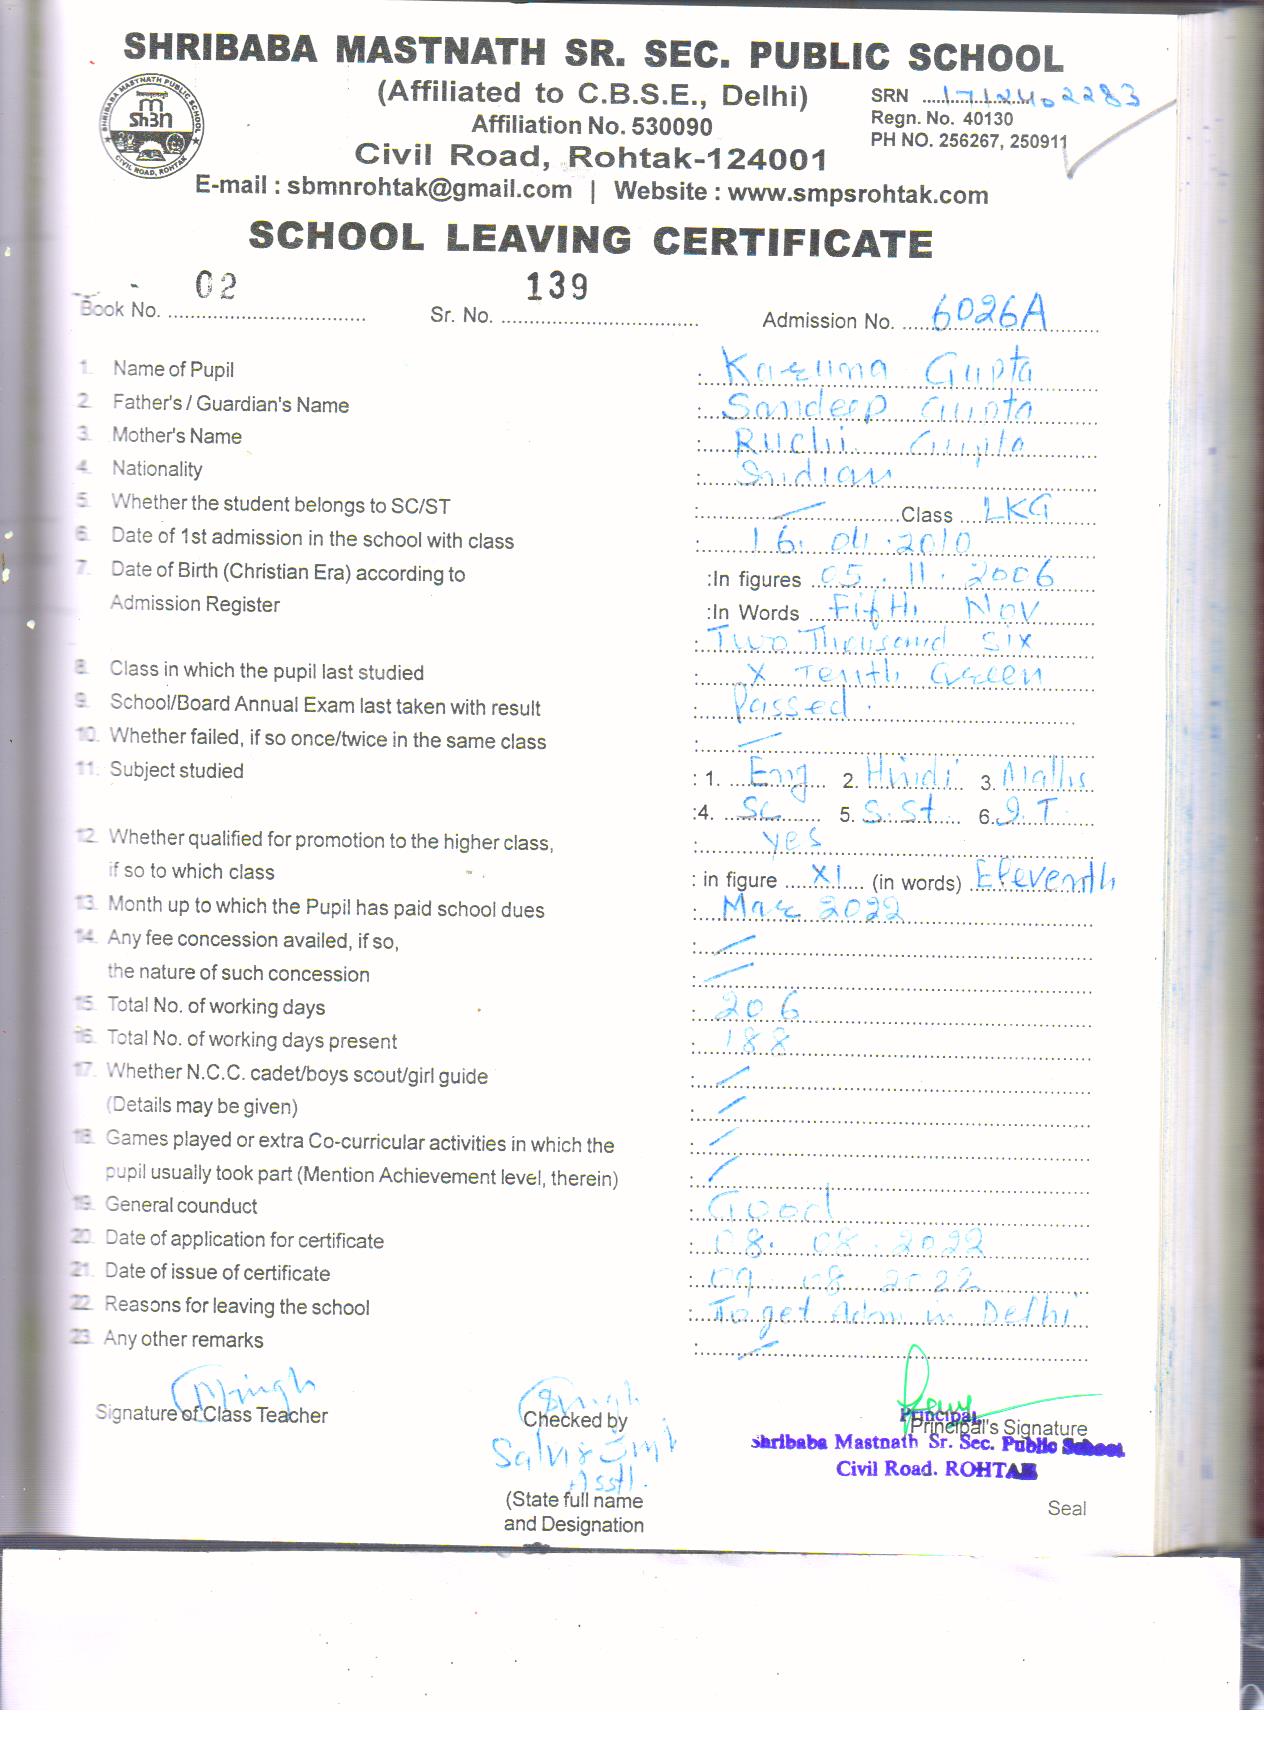 SHRIBABA MASTNATH SR. SEC. PUBLIC SCHOOL
(Affiliated to C.B.S.E., Delhi)
Affiliation No. 530090
Civil Road, Rohtak-124001
SRN 1712402283
Regn. No. 40130
PH NO. 256267, 250911
SHRIBABA MASTNATH PUBLIC SCHOOL
CIVIL ROAD, ROHTAK
E-mail : sbmnrohtak@gmail.com | Website : www.smpsrohtak.com
SCHOOL LEAVING CERTIFICATE
Book No. 02 Sr. No. 139 Admission No. 6026A
1. Name of Pupil : Karuna Gupta
2. Father's / Guardian's Name : Sandeep Gupta
3. Mother's Name : Ruchi Gupta
4. Nationality : Indian
5. Whether the student belongs to SC/ST : Class LKG
6. Date of 1st admission in the school with class : 16.04.2010
7. Date of Birth (Christian Era) according to :In figures 05.11.2006
Admission Register :In Words Fifth Nov
: Two Thousand Six
8. Class in which the pupil last studied : X Tenth Green
9. School/Board Annual Exam last taken with result : Passed.
10. Whether failed, if so once/twice in the same class :
11. Subject studied : 1. Eng 2. Hindi 3. Maths
:4. Sc 5. S.St 6. I.T
12. Whether qualified for promotion to the higher class, : yes
if so to which class : in figure XI (in words) Eleventh
13. Month up to which the Pupil has paid school dues : Mar 2022
14. Any fee concession availed, if so, :
the nature of such concession :
15. Total No. of working days : 206
16. Total No. of working days present : 188
17. Whether N.C.C. cadet/boys scout/girl guide :
(Details may be given) :
18. Games played or extra Co-curricular activities in which the :
pupil usually took part (Mention Achievement level, therein) :
19. General counduct : Good
20. Date of application for certificate : 08.08.2022
21. Date of issue of certificate : 09 08 2022
22. Reasons for leaving the school : To get Adm in Delhi
23. Any other remarks :
Signature of Class Teacher Checked by Principal's Signature
Principal,
Shribaba Mastnath Sr. Sec. Public School
Civil Road. ROHTAK
(State full name
and Designation
Seal